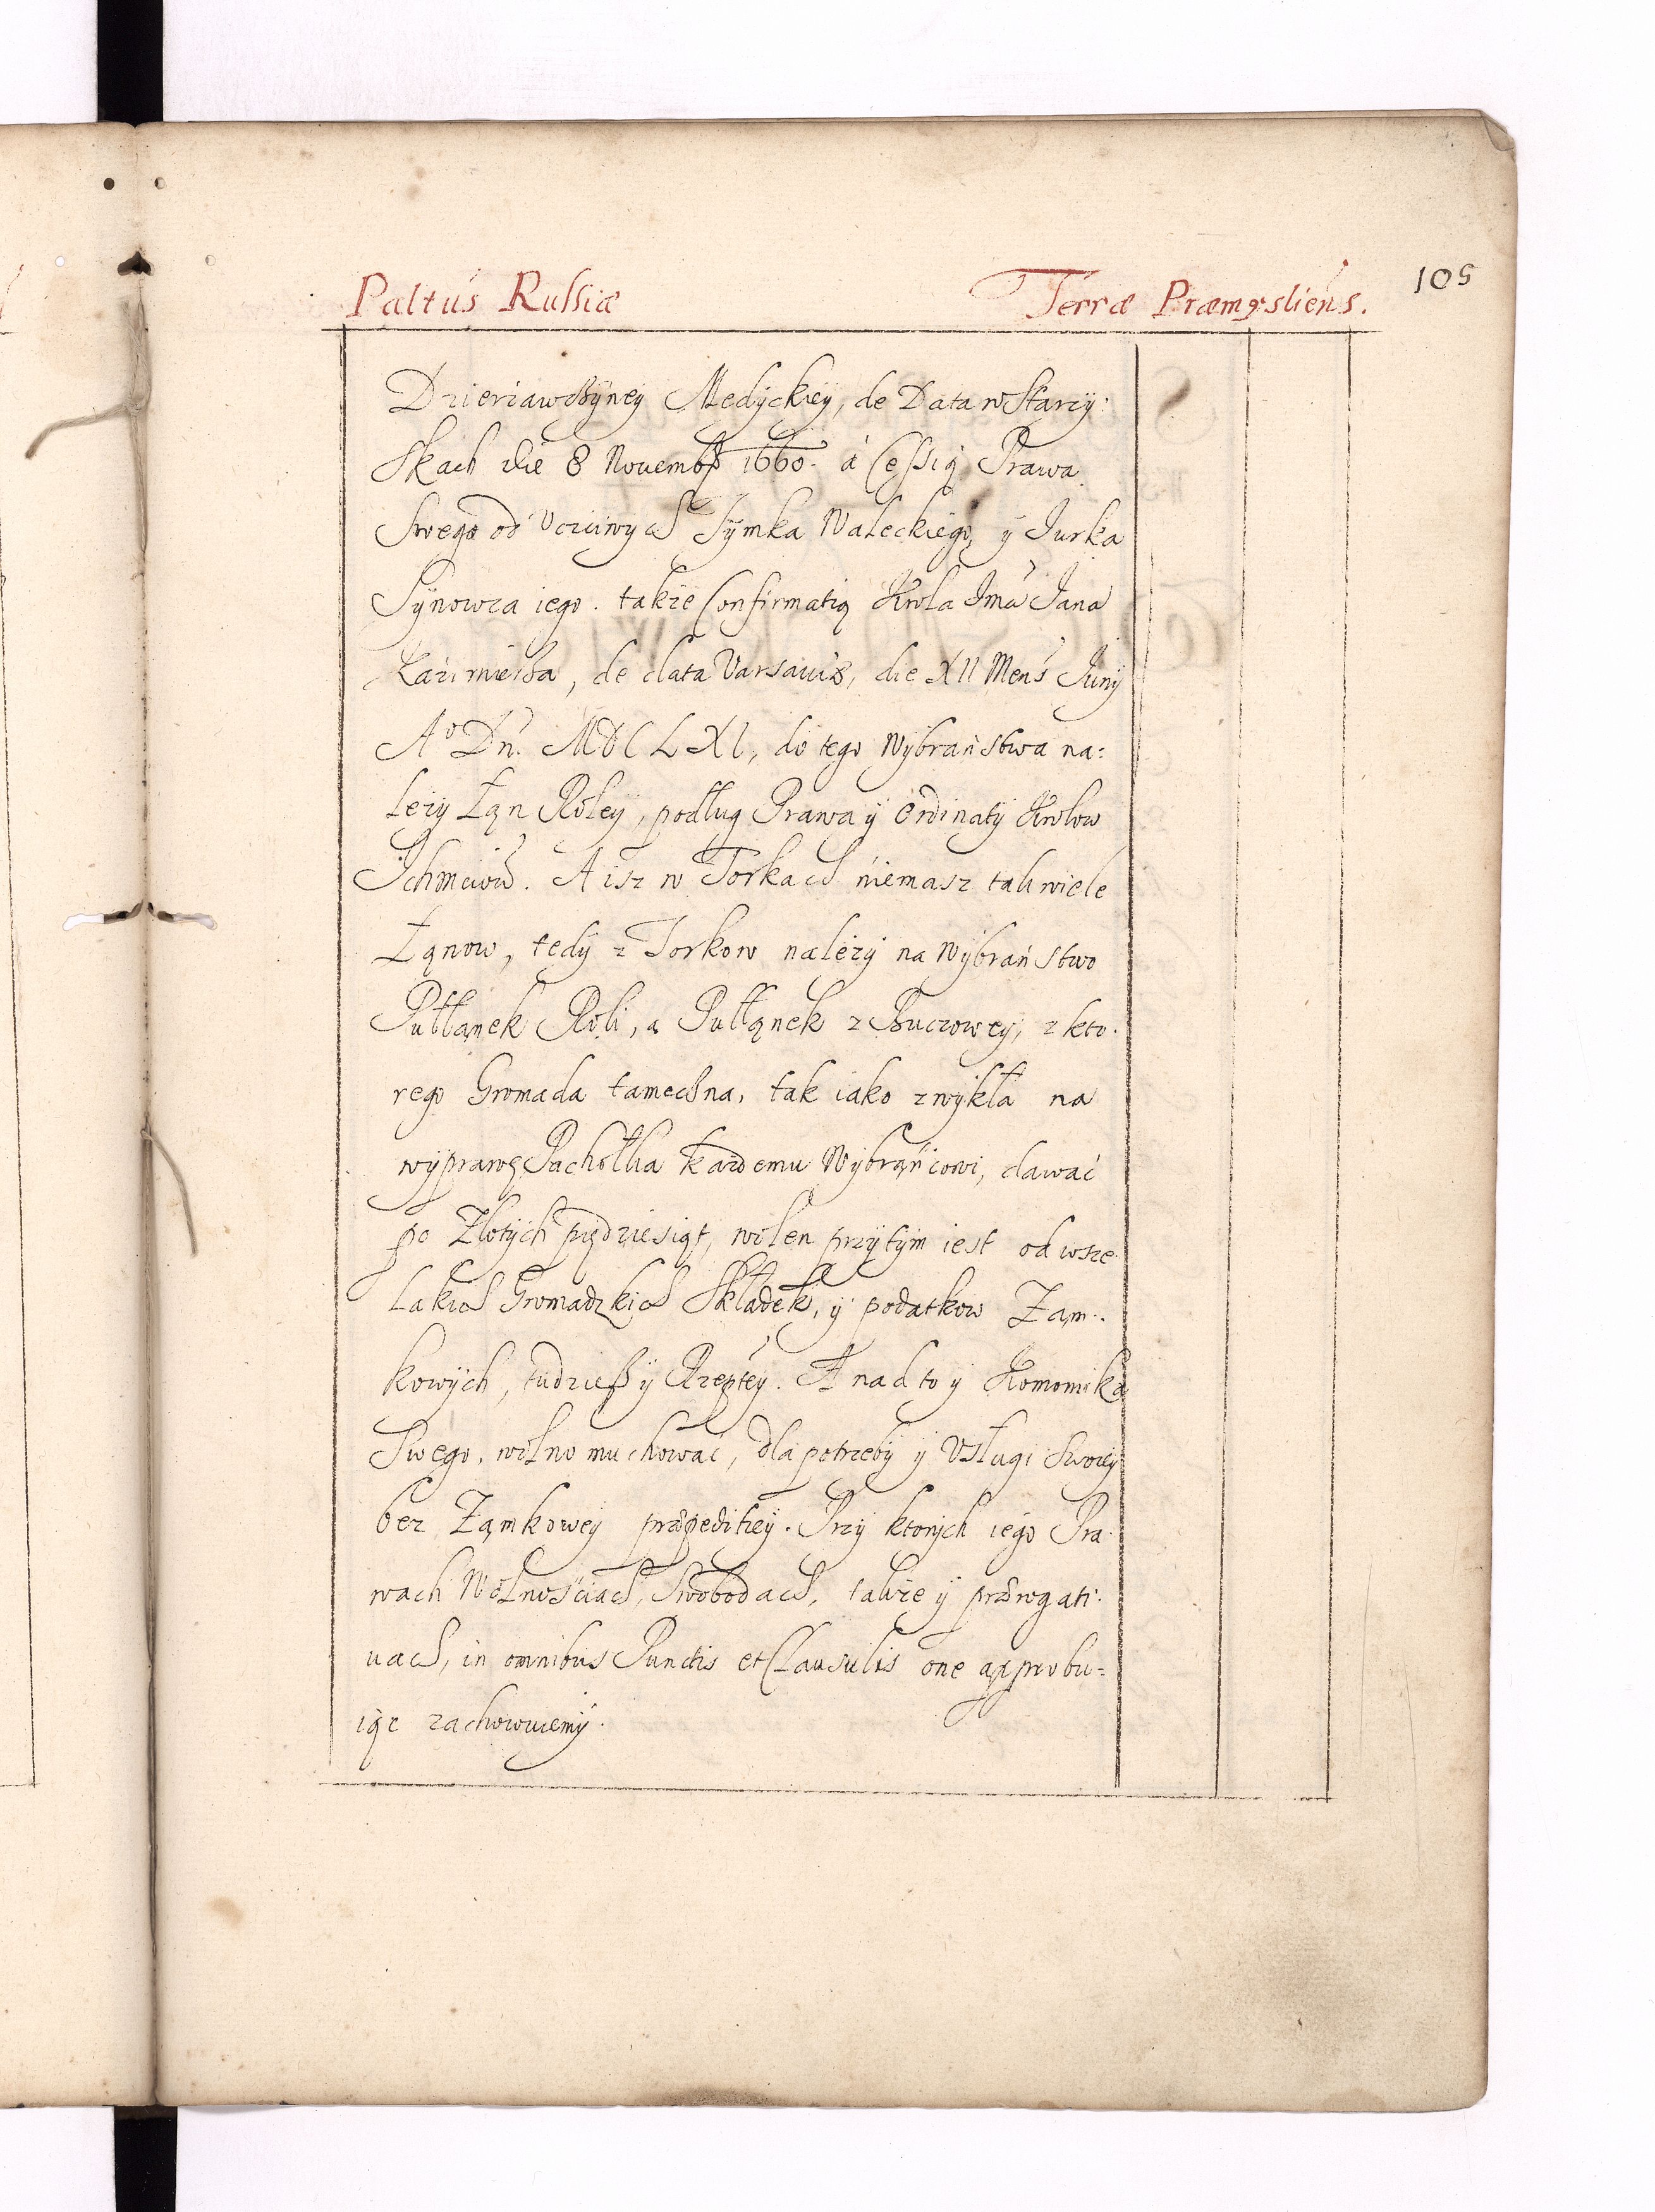 Paltus Russiæ Terræ Præmysliens.
105
Dzierżawczyney Medyckiey, de Data w Starzy:
skach die 8 Novembr 1660. á Cessią Prawa
Swego od Uczciwych Symka Waleckiego, y Jurka
Synowca iego. także Confirmatią Krola Jmći Jana
Kazimierza, de data Varsaviæ, die XII Mens Juny
Aº Dn. MDCLXI, do tego Wybraństwa na=
leży Łan Roley, podług Prawa y Ordinatÿ Krolow
Ichmciow. A isz w Torkach niemasz tak wiele
Łanow, tedy z Torkow należy na Wybraństwo
Pułłanek Roli, a Pułłanek z Buczowey, z kto.
rego Gromada tameczna, tak iako zwykła na
wyprawę Pachołka każdemu Wybrańcowi, dawać
po Złotych pięćdziesiąt, wolen przytym iest od wsze.
lakich Gromadzkich Składek, y podatkow Zam:
kowych, tudziesz y Rzeptey. A nad to y Komornika
Swego, wolno mu chować, dla potrzeby y Usługi Swoiey
bez Zamkowey præpeditiey. Przy ktorych iego Pra
wach Wolnościach, Swobodach, także y prærogati:
uach, in omnibus Punctis et Clausulis one approbu=
iąc zachowuiemy.